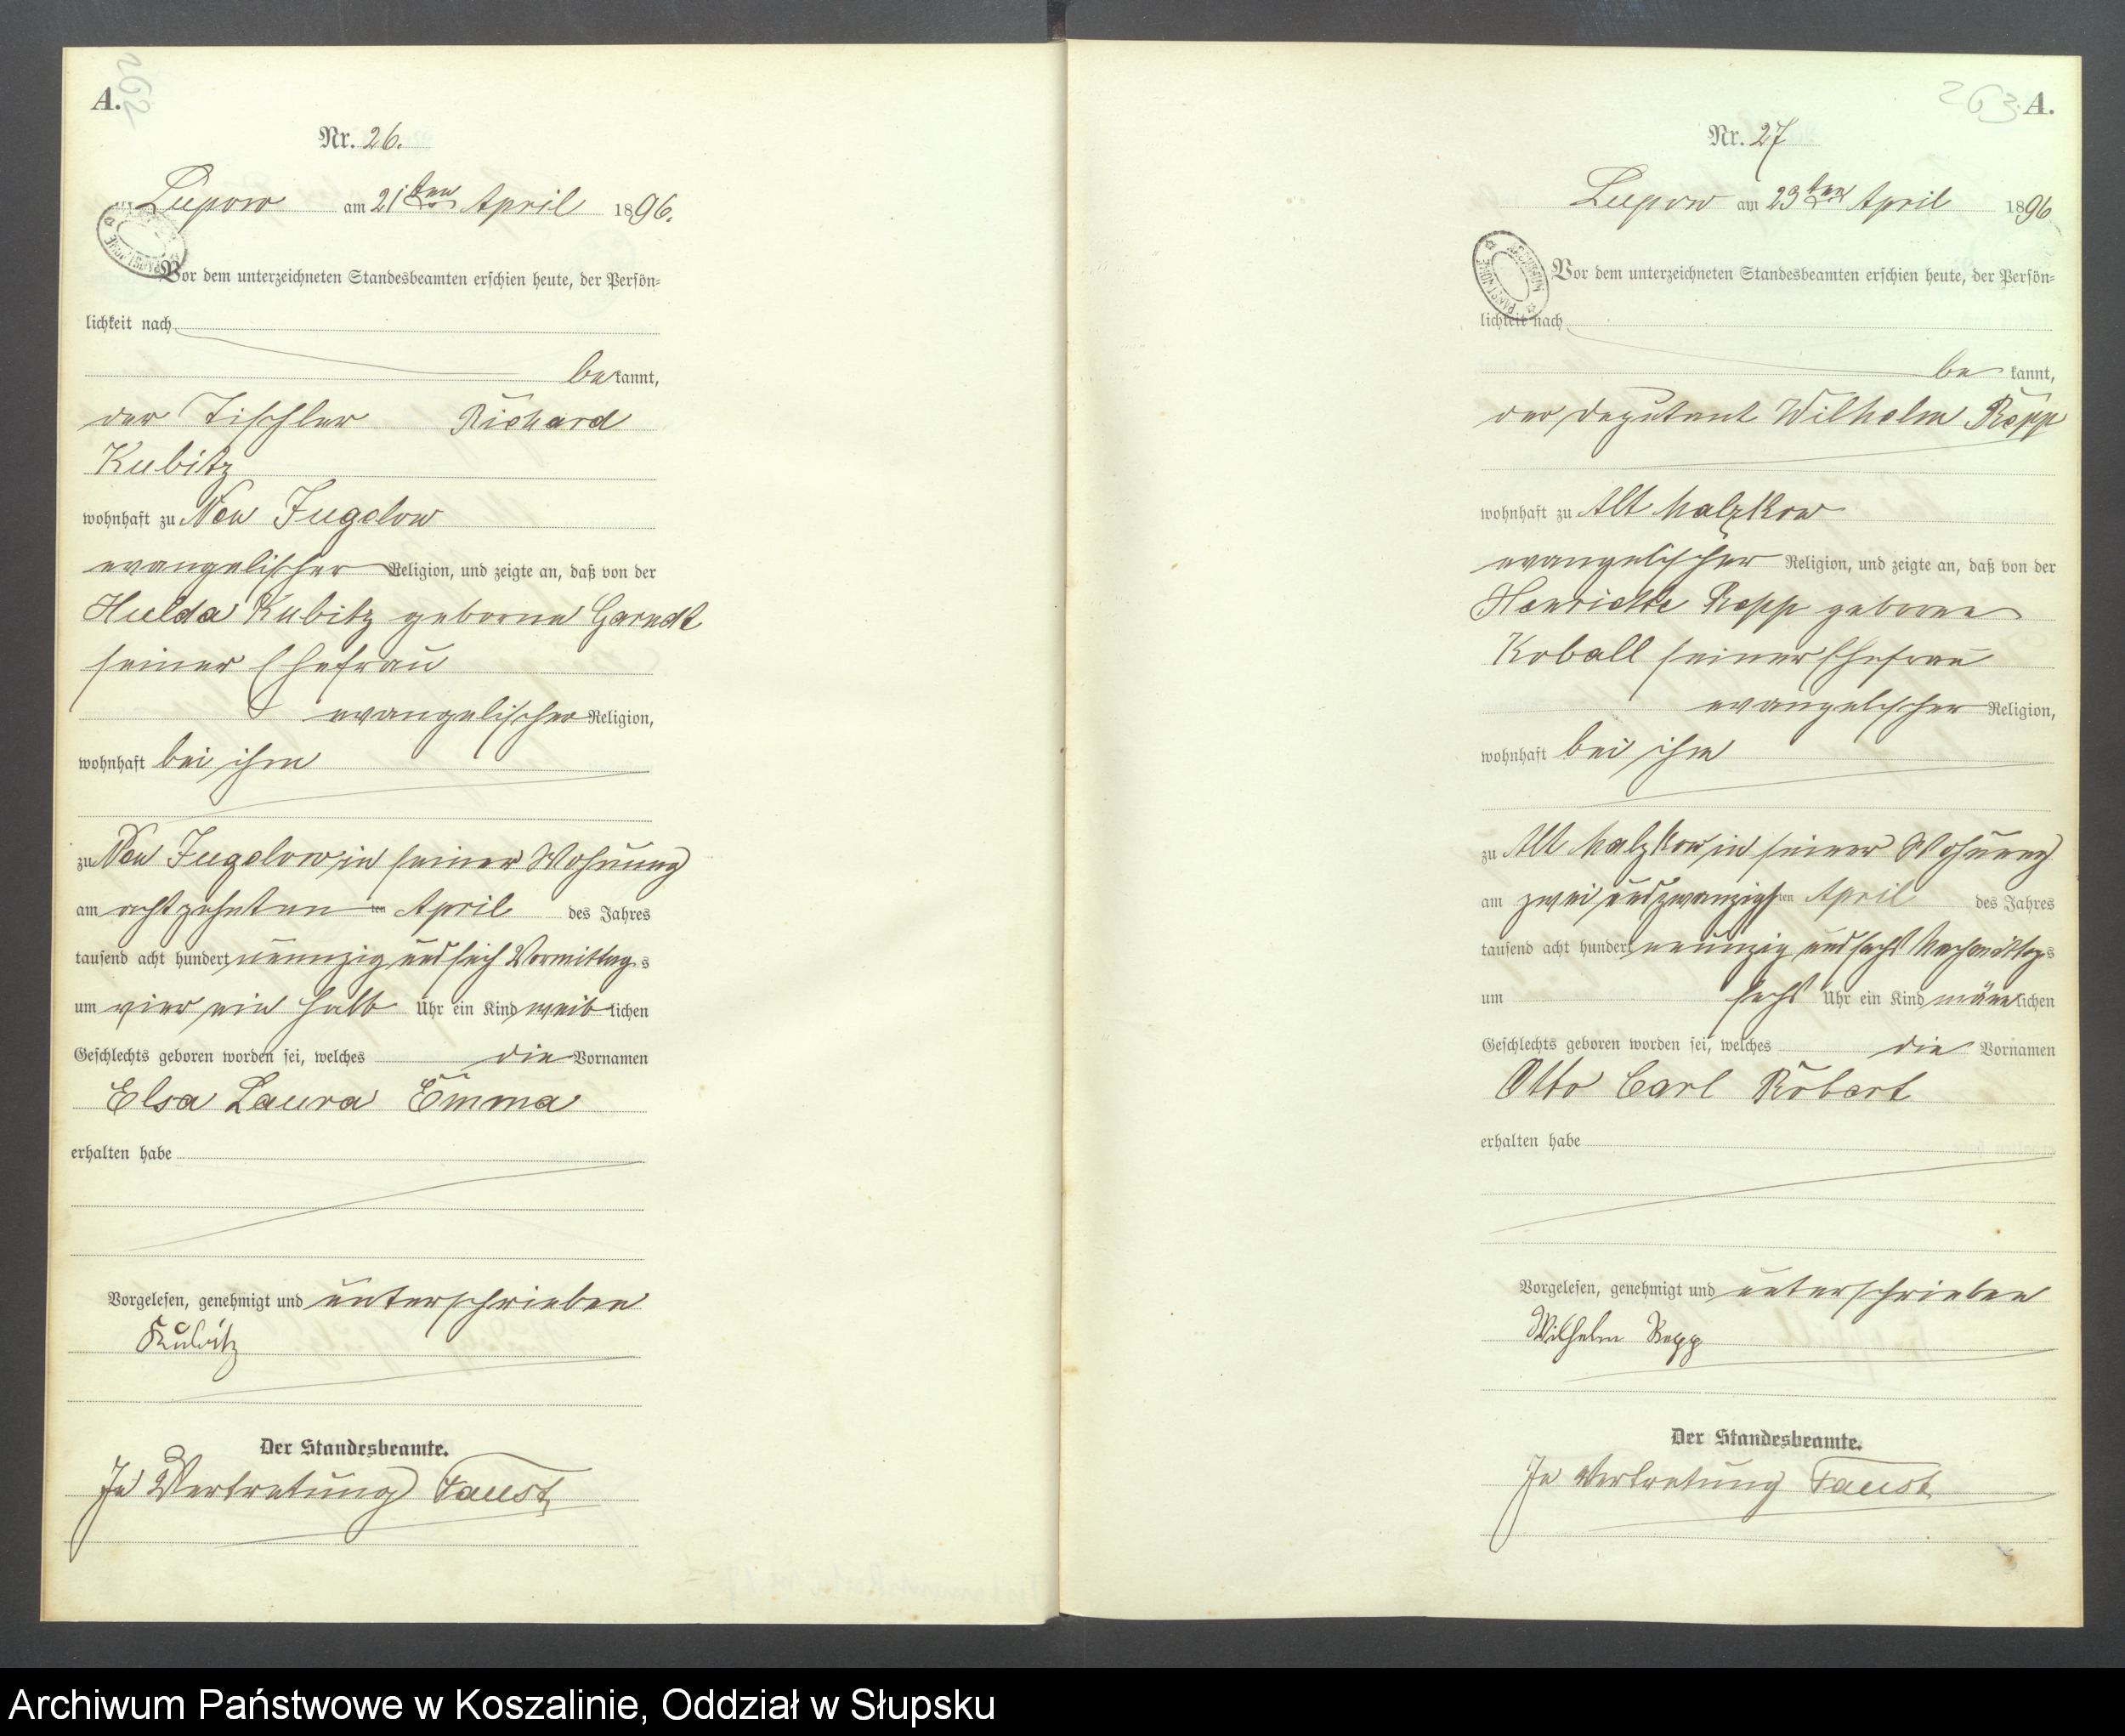 262
A.
Nr. 26.
Lupow am 21ten April 1896.
Vor dem unterzeichneten Standesbeamten erschien heute, der Persön-
lichkeit nach
bekannt,
der Tischler Richard
Kubitz
wohnhaft zu Neu Jugelow
evangelischer Religion, und zeigte an, daß von der
Hulda Kubitz geborne Garndt
seiner Ehefrau
evangelischer Religion,
wohnhaft bei ihm
zu Neu Jugelow in seiner Wohnung
am achtzehnten ten April des Jahres
tausend acht hundert neunzig und sechs Vormittags
um vier ein halb Uhr ein Kind weiblichen
Geschlechts geboren worden sei, welches die Vornamen
Elsa Laura Emma
erhalten habe
Vorgelesen, genehmigt und unterschrieben
Kubitz
Der Standesbeamte.
In Vertretung Faust
263. A.
Nr. 27
Lupow am 23ten April 1896
Vor dem unterzeichneten Standesbeamten erschien heute, der Persön-
lichkeit nach
bekannt,
der Deputant Wilhelm Repp
wohnhaft zu Alt Malzkow
evangelischer Religion, und zeigte an, daß von der
Henriette Repp geborne
Koball seiner Ehefrau
evangelischer Religion,
wohnhaft bei ihm
zu Alt Malzkow in seiner Wohnung
am zwei und zwanzigsten April des Jahres
tausend acht hundert neunzig und sechs Nachmittags
um sechs Uhr ein Kind männlichen
Geschlechts geboren worden sei, welches die Vornamen
Otto Carl Robert
erhalten habe
Vorgelesen, genehmigt und unterschrieben
Wilhelm Repp
Der Standesbeamte.
In Vertretung Faust
Archiwum Państwowe w Koszalinie, Oddział w Słupsku